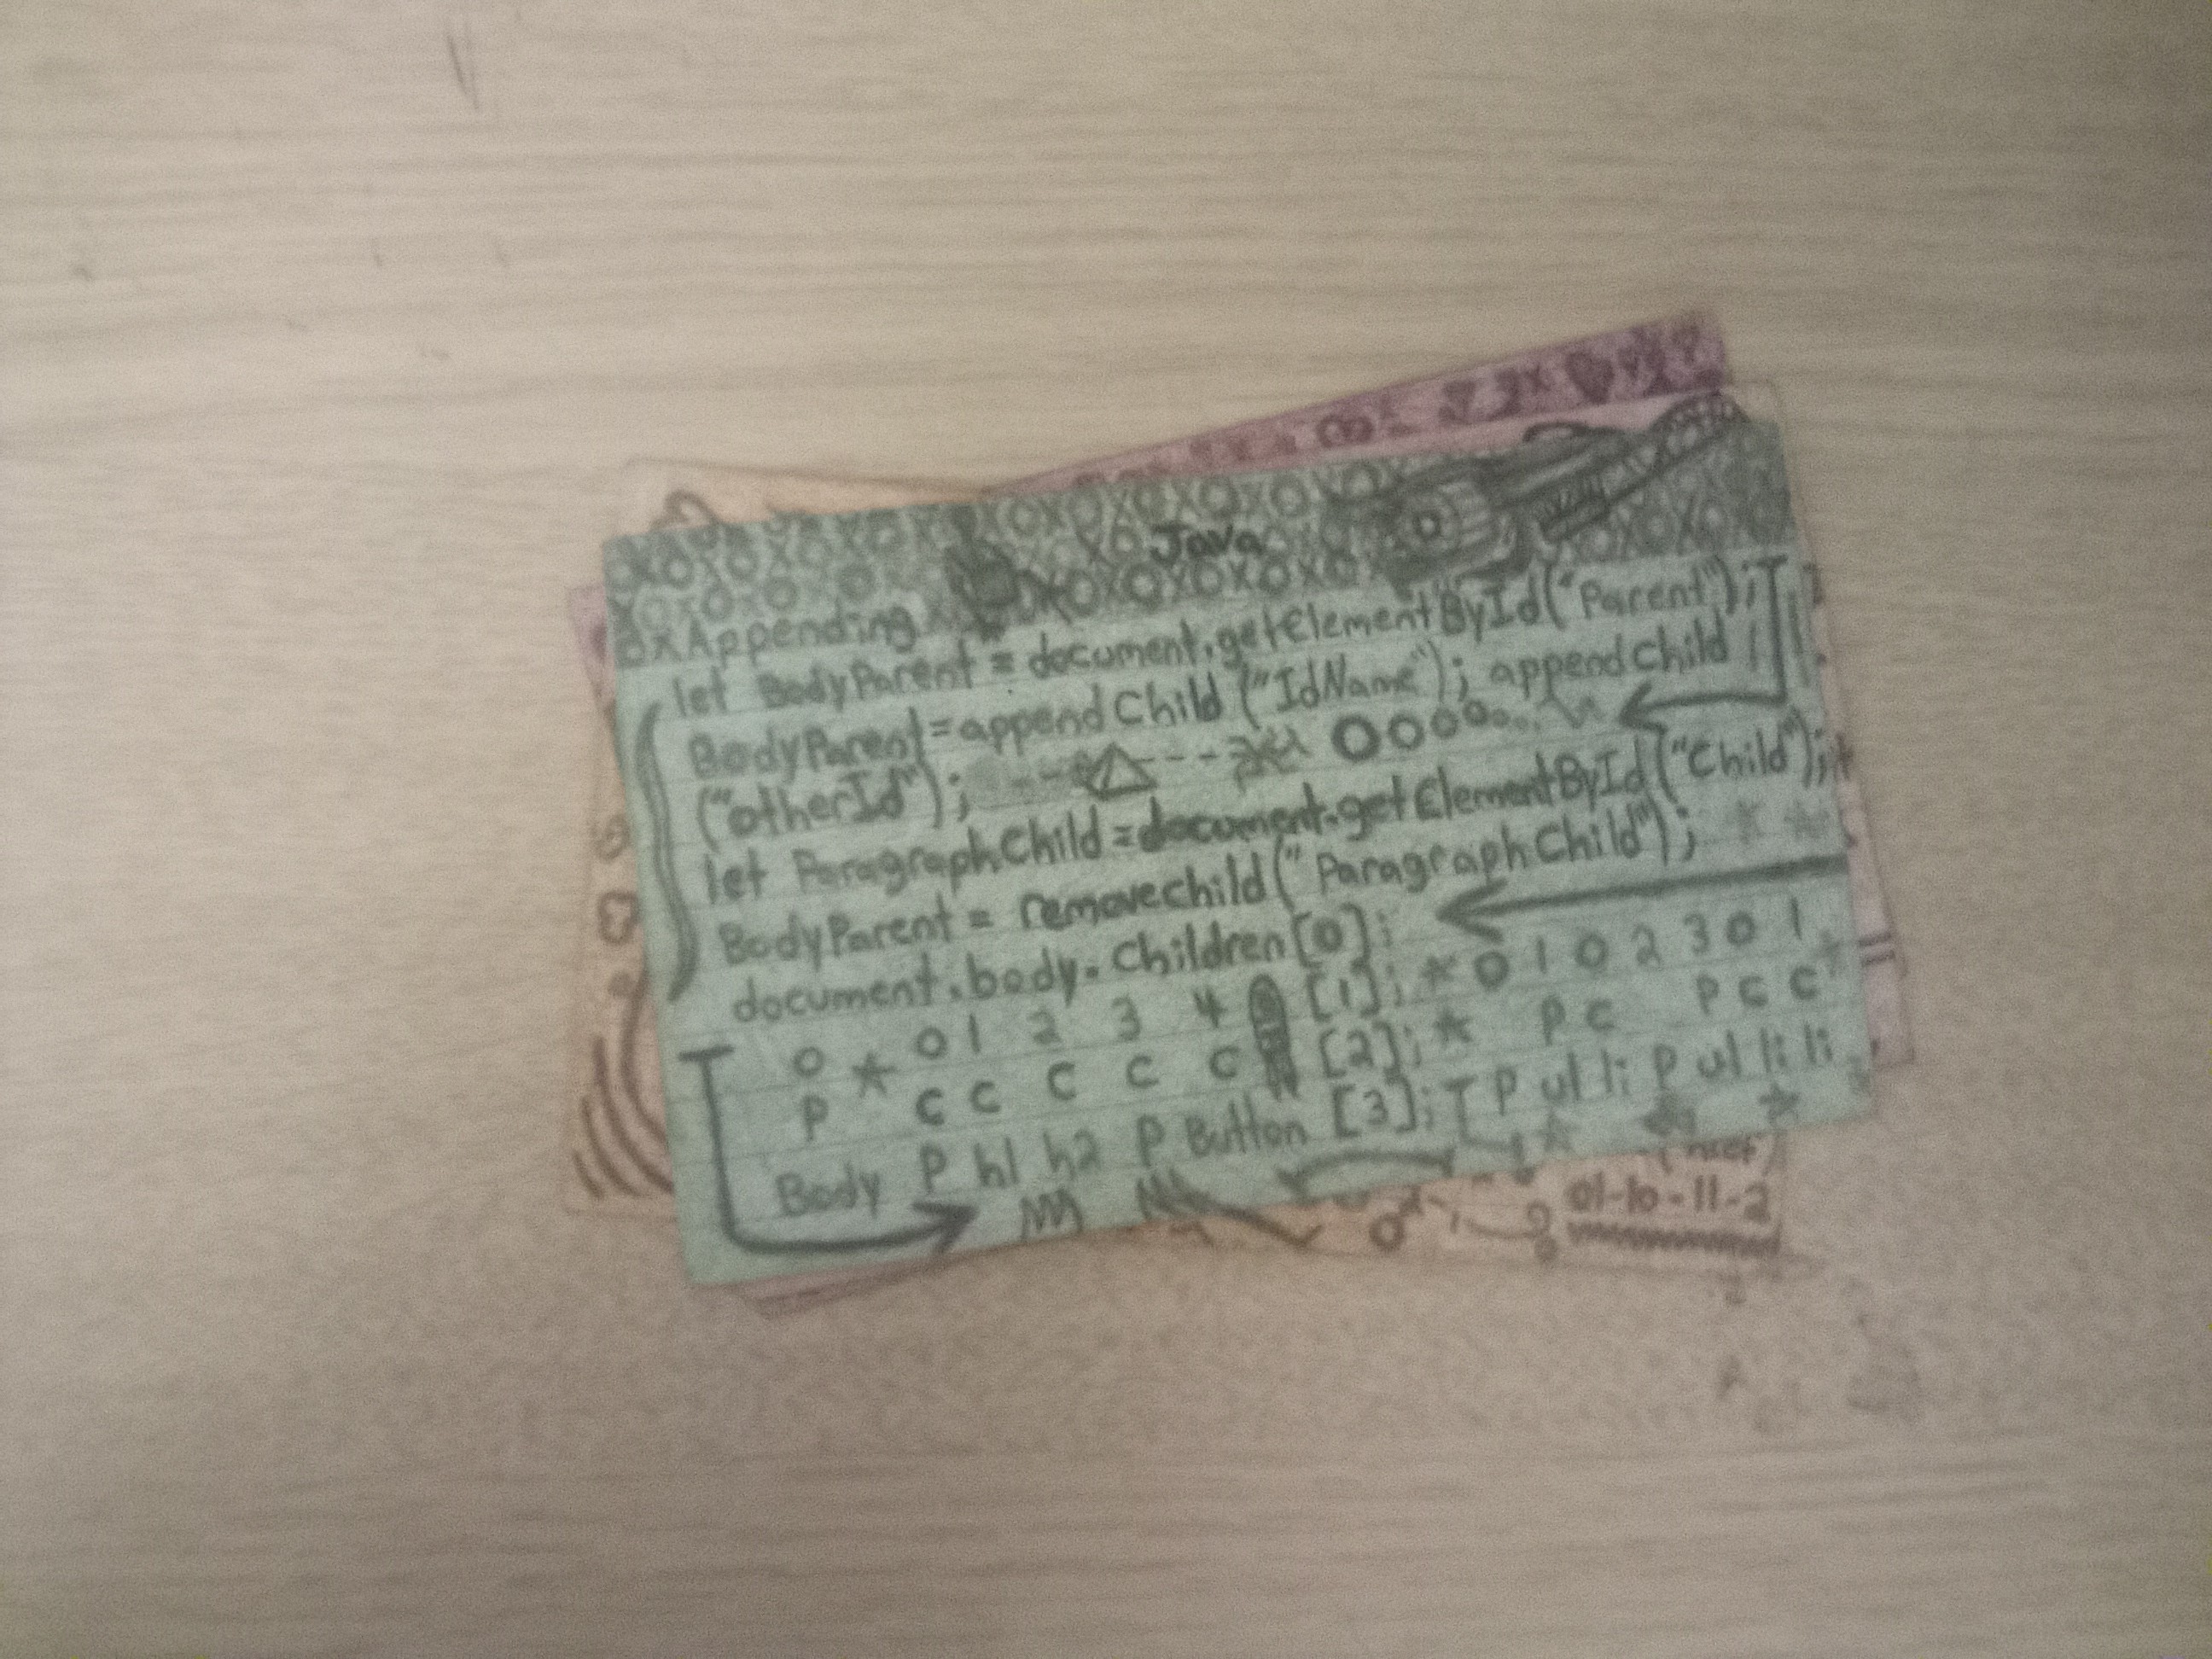 Java
Appending
let BodyParent = document.getElementById("Parent");
BodyParent=appendChild("IdName"); appendChild
("otherId");
let ParagraphChild=document.getElementById("Child");
BodyParent = removechild("ParagraphChild");
document.body.Children[0];
0 0 1 2 3 4 [1]; 0 1 0 2 3 0 1
P C C C C C [2]; P C P C C
Body P h1 h2 P Button [3]; P ul li P ul li li
01-10-11-2